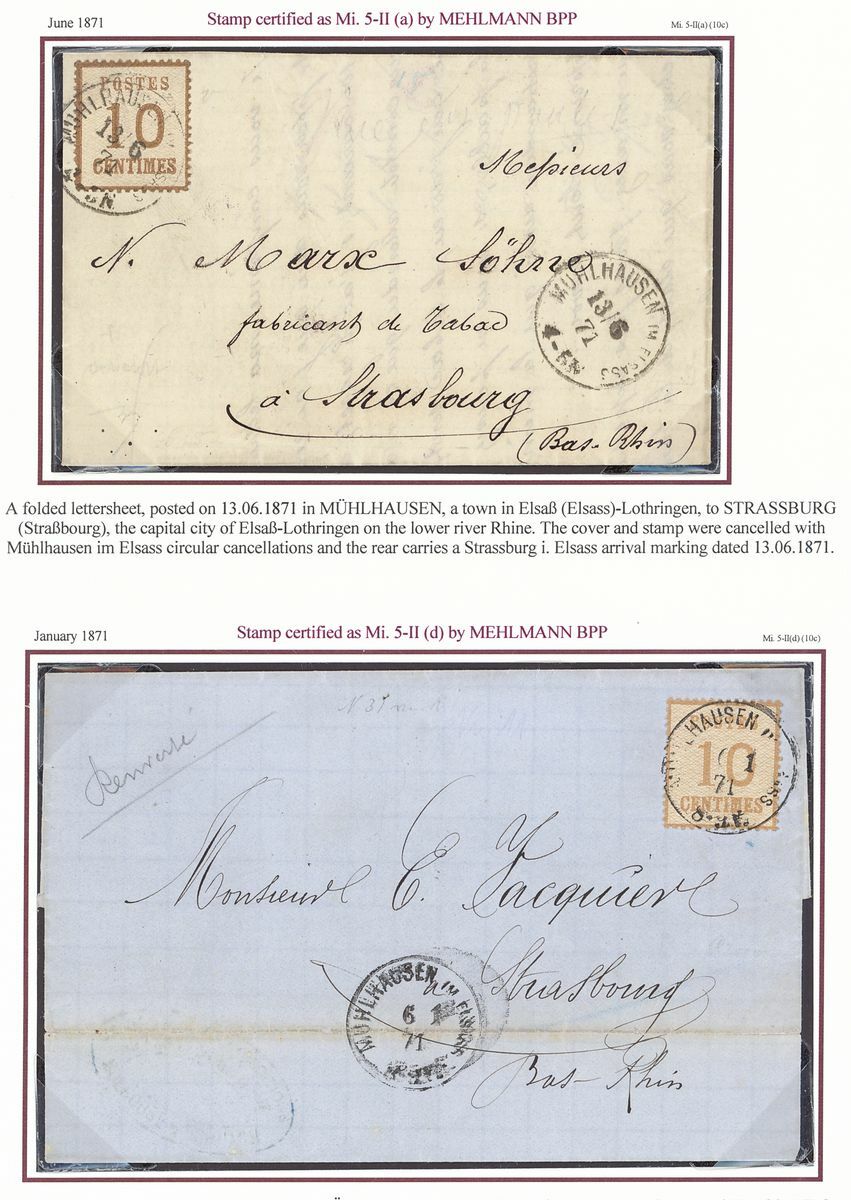 June 1871
Stamp certified as Mi. 5-II (a) by MEHLMANN BPP
Mi. 5-II(a) (10c)
POSTES
10
CENTIMES
MÜHLHAUSEN
13/6
71
Messieurs
N. Marx Söhne
fabricant de Tabac
à Strasbourg
(Bas-Rhin)
MÜHLHAUSEN IM ELSASS
13/6
71
4-5N
A folded lettersheet, posted on 13.06.1871 in MÜHLHAUSEN, a town in Elsaß (Elsass)-Lothringen, to STRASSBURG
(Straßbourg), the capital city of Elsaß-Lothringen on the lower river Rhine. The cover and stamp were cancelled with
Mühlhausen im Elsass circular cancellations and the rear carries a Strassburg i. Elsass arrival marking dated 13.06.1871.
January 1871
Stamp certified as Mi. 5-II (d) by MEHLMANN BPP
Mi. 5-II(d) (10c)
10
CENTIMES
MÜHLHAUSEN
1
71
Monsieur E. Jacquier
à Strasbourg
Bas-Rhin
MÜHLHAUSEN IM ELSASS
6 1
71